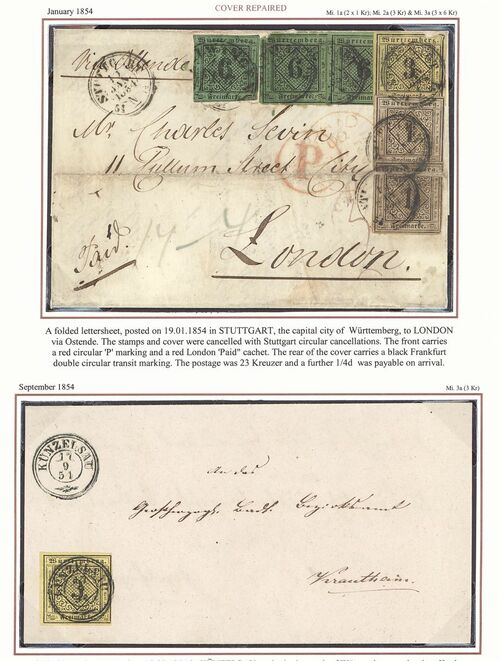 January 1854
COVER REPAIRED
Mi. 1a (2 x 1 Kr); Mi. 2a (3 Kr) & Mi. 3a (3 x 6 Kr)
via Ostende
STUTTGART
Württemberg.
6
Freimarke.
Württemberg.
6
Freimarke.
Württemberg.
Freimarke.
Württemberg.
3
Württemberg.
1
Freimarke.
1
Freimarke.
Mr. Charles Sevin
P
11 Pullum Street City
London.
Paid
A folded lettersheet, posted on 19.01.1854 in STUTTGART, the capital city of Württemberg, to LONDON
via Ostende. The stamps and cover were cancelled with Stuttgart circular cancellations. The front carries
a red circular 'P' marking and a red London 'Paid" cachet. The rear of the cover carries a black Frankfurt
double circular transit marking. The postage was 23 Kreuzer and a further 1/4d was payable on arrival.
September 1854
Mi. 3a (3 Kr)
KÜNZELSAU
9
An das
Grosherzogl. Bad. Bezirksamt
Krautheim.
Württemberg.
3
Freimarke.